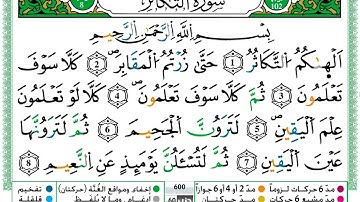 سُورَةُ التَّكَاثُرِ
بِسْمِ اللَّهِ الرَّحْمَٰنِ الرَّحِيمِ
أَلْهَىٰكُمُ التَّكَاثُرُ ١ حَتَّىٰ زُرْتُمُ الْمَقَابِرَ ٢ كَلَّا سَوْفَ
تَعْلَمُونَ ٣ ثُمَّ كَلَّا سَوْفَ تَعْلَمُونَ ٤ كَلَّا لَوْ تَعْلَمُونَ
عِلْمَ الْيَقِينِ ٥ لَتَرَوُنَّ الْجَحِيمَ ٦ ثُمَّ لَتَرَوُنَّهَا
عَيْنَ الْيَقِينِ ٧ ثُمَّ لَتُسْأَلُنَّ يَوْمَئِذٍ عَنِ النَّعِيمِ ٨
مدّ ٦ حركات لزوماً مدّ ٢ أو ٤ أو ٦ جوازاً 600 إخفاء، ومواقع الغُنَّة (حركتان) تفخيم
مدّ مشبع ٦ حركات مدّ حركتان إدغام، وما لا يُلفَظ قلقلة